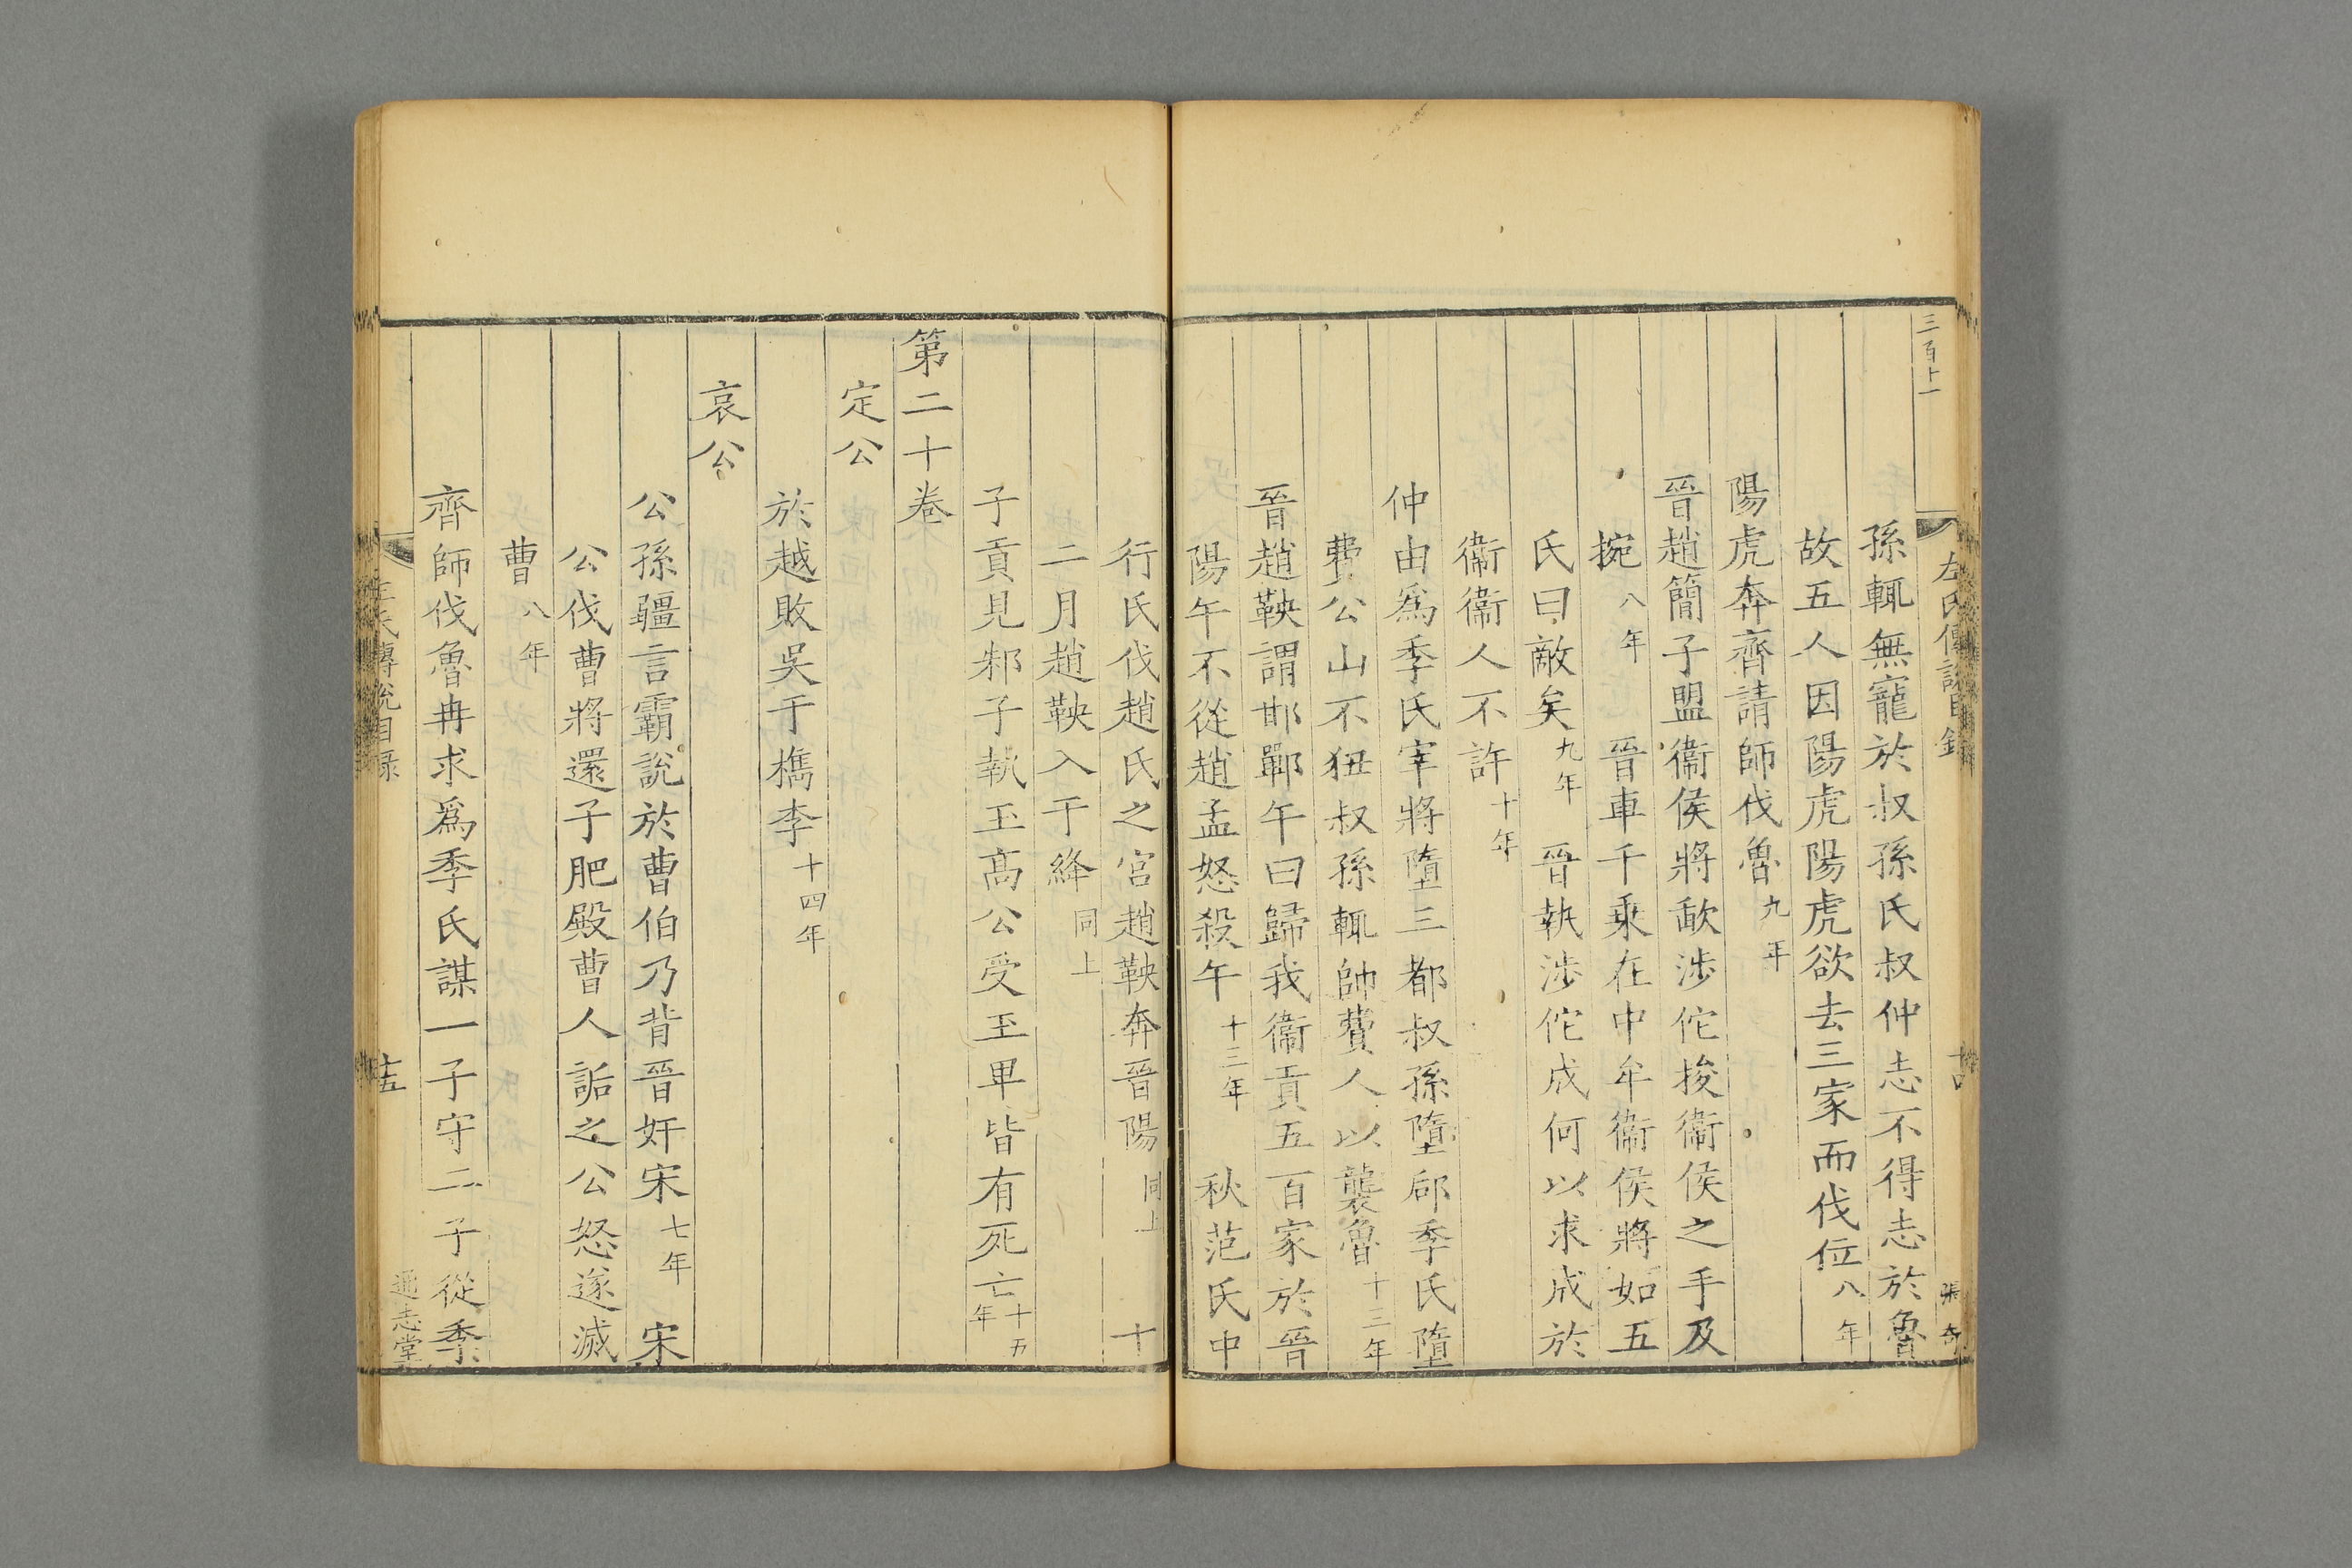 三百十一
左氏傳說目錄
十四
張奇
孫輒無寵於叔孫氏叔仲志不得志於魯
故五人因陽虎陽虎欲去三家而伐位八年
陽虎奔齊請師伐魯九年
晉趙簡子盟衞侯將歃涉佗捘衞侯之手及
捥八年 晉車千乘在中牟衞侯將如五
氏曰敵矣九年 晉執涉佗成何以求成於
衞衞人不許十年
仲由爲季氏宰將墮三都叔孫墮郈季氏墮
費公山不狃叔孫輒帥費人以襲魯十二年
晉趙鞅謂邯鄲午曰歸我衞貢五百家於晉
陽午不從趙孟怒殺午十三年 秋范氏中
行氏伐趙氏之宮趙鞅奔晉陽同上 十
二月趙鞅入于絳同上
子貢見邾子執玉高公受玉卑皆有死亡十五年
第二十卷
定公
於越敗吳于檇李十四年
哀公
公孫疆言霸說於曹伯乃背晉奸宋七年 宋
公伐曹將還子肥殿曹人詬之公怒遂滅
曹八年
齊師伐魯冉求爲季氏謀一子守二子從季
左氏傳說目錄
十五
通志堂